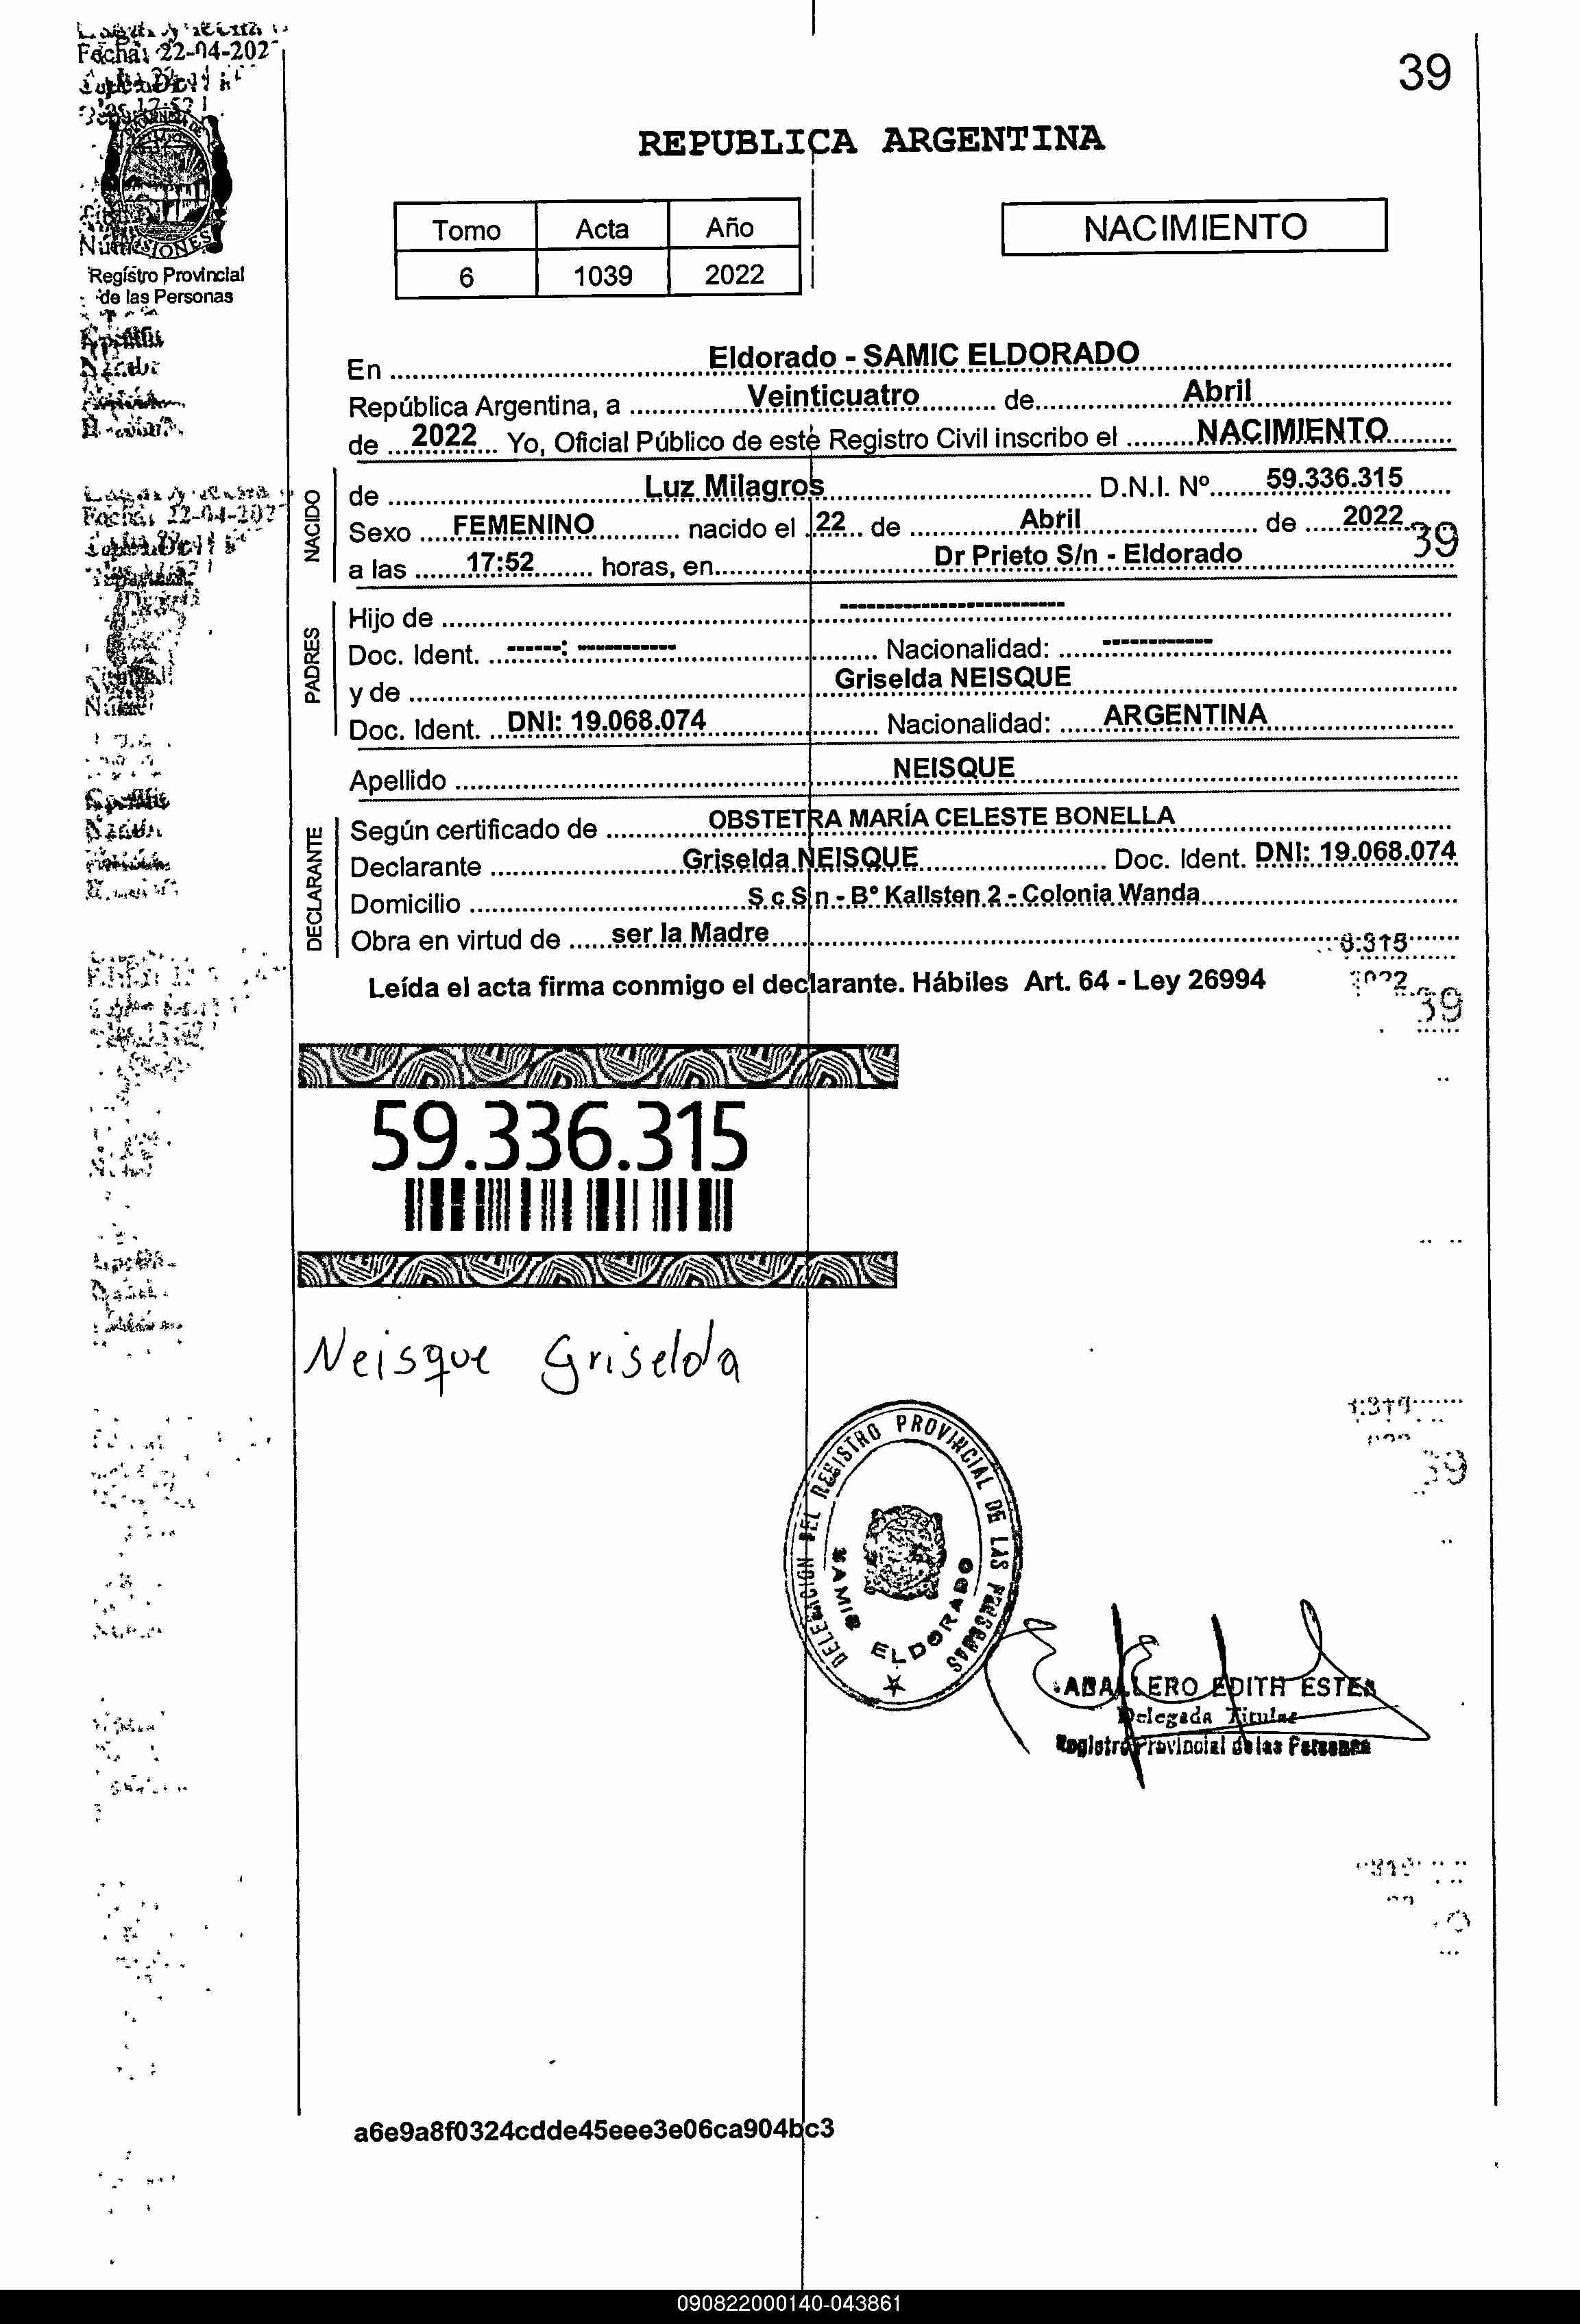 Fecha: 22-04-202
39
REPUBLICA ARGENTINA
Tomo Acta Año
NACIMIENTO
6 1039 2022
Registro Provincial
de las Personas
En Eldorado - SAMIC ELDORADO
República Argentina, a Veinticuatro de Abril
de 2022 Yo, Oficial Público de este Registro Civil inscribo el NACIMIENTO
NACIDO
de Luz Milagros D.N.I. Nº 59.336.315
Sexo FEMENINO nacido el 22 de Abril de 2022
39
a las 17:52 horas, en Dr Prieto S/n - Eldorado
PADRES
Hijo de -------------------------
Doc. Ident. ------: ----------- Nacionalidad: ------------
y de Griselda NEISQUE
Doc. Ident. DNI: 19.068.074 Nacionalidad: ARGENTINA
Apellido NEISQUE
DECLARANTE
Según certificado de OBSTETRA MARÍA CELESTE BONELLA
Declarante Griselda NEISQUE Doc. Ident. DNI: 19.068.074
Domicilio S c S n - B° Kallsten 2 - Colonia Wanda
Obra en virtud de ser la Madre
Leída el acta firma conmigo el declarante. Hábiles Art. 64 - Ley 26994
39
59.336.315
Neisque Griselda
DELEGACION DEL REGISTRO PROVINCIAL DE LAS PERSONAS
SAMIC ELDORADO
39
ABALLERO EDITH ESTER
Delegada Titular
Registro Provincial de las Personas
a6e9a8f0324cdde45eee3e06ca904bc3
090822000140-043861